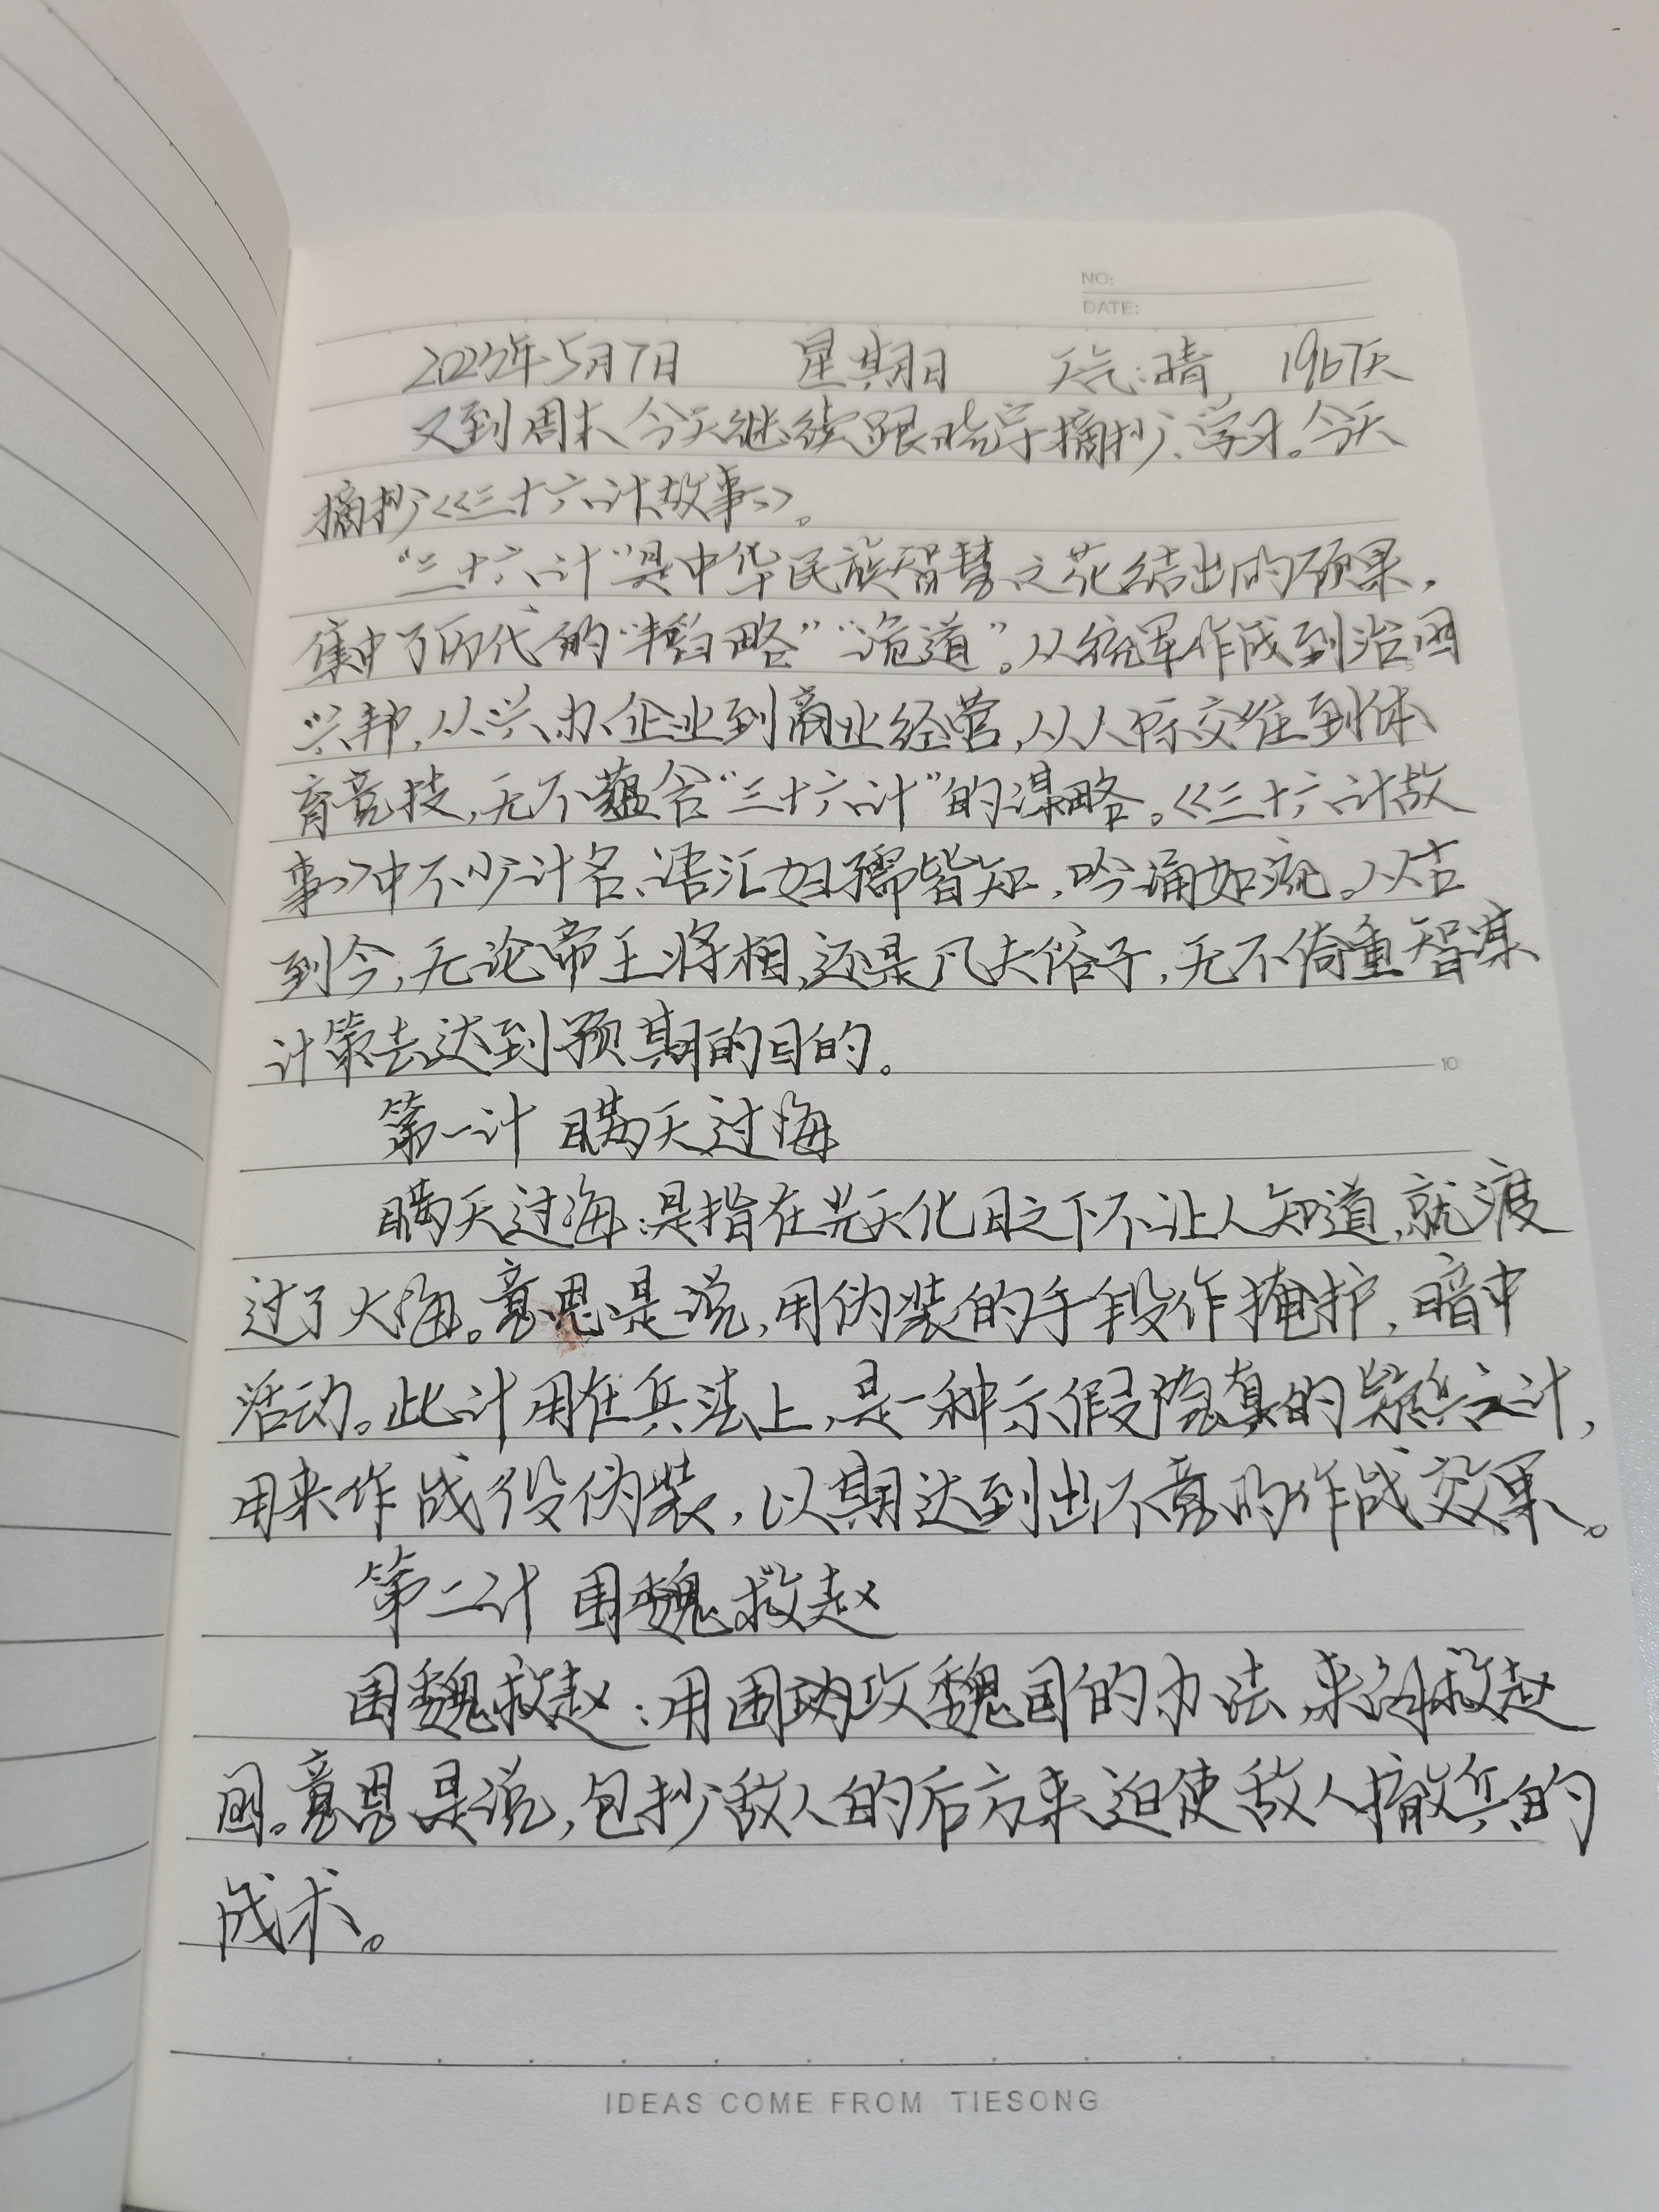 NO:
DATE:
2023年5月7日 星期日 天气:晴, 1967天
又到周末今天继续跟晓宇摘抄、学习。今天
摘抄《三十六计故事》。
“三十六计”是中华民族智慧之花结出的硕果,
集中了历代的“韬略”“诡道”。从统军作战到治国
兴邦,从兴办企业到商业经营,从人际交往到体
育竞技,无不蕴含“三十六计”的谋略。《三十六计故
事》中不少计名、语汇妇孺皆知,吟诵如流。从古
到今,无论帝王将相,还是凡夫俗子,无不倚重智谋
计策去达到预期的目的。
10
第一计 瞒天过海
瞒天过海:是指在光天化日之下不让人知道,就渡
过了大海。意思是说,用伪装的手段作掩护,暗中
活动。此计用在兵法上,是一种示假隐真的疑兵之计,
用来作战役伪装,以期达到出不意的作战效果。
第二计 围魏救赵
围魏救赵:用围攻魏国的办法,来救赵
国。意思是说,包抄敌人的后方来迫使敌人撤兵的
战术。
IDEAS COME FROM TIESONG